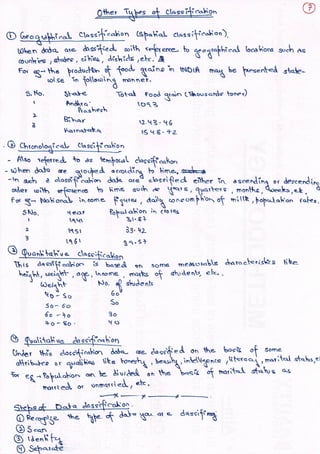 Other Types of Classification
7
① Geographical Classification (Spatial classification)
When data are classified with reference to geographical locations such as
countries, states, cities, districts, etc.
For eg- the production of food grains in INDIA may be presented state-
wise in following manner.
S.No. State Total Food grain (thousands tones)
1 Andhra Pradesh 1093
2 Bihar 12.43-46
3 Karnataka 1548-92
② Chronological Classification
- Also referred to as temporal classification
- When data are grouped according to time,
-In such a classification data are classified either in ascending or descending
order with reference to time such as years, quarters, months, weeks, etc.
For eg- National income figures, daily consumption of milk, population rates.
SNo. year Population in crores
1 1941 31.87
2 1951 39.42
3 1961
③ Quantitative classification
This classification is based on some measurable characteristics like
height, weight, age, income, marks of students etc.
Weight No. of students
40-50 60
50-60 50
60-70 30
70-80. 40
④ Qualitative classification
Under this classification data are classified on the basis of some
attributes or qualities like honesty, beauty, intelligence, literacy, marital status, etc
for eg-Population can be divided on the basis of marital status as
married or unmarried, etc.
Steps of Data classification
① Recognize the type of data you are classifying
② Scan
③ Identify
④ Separate